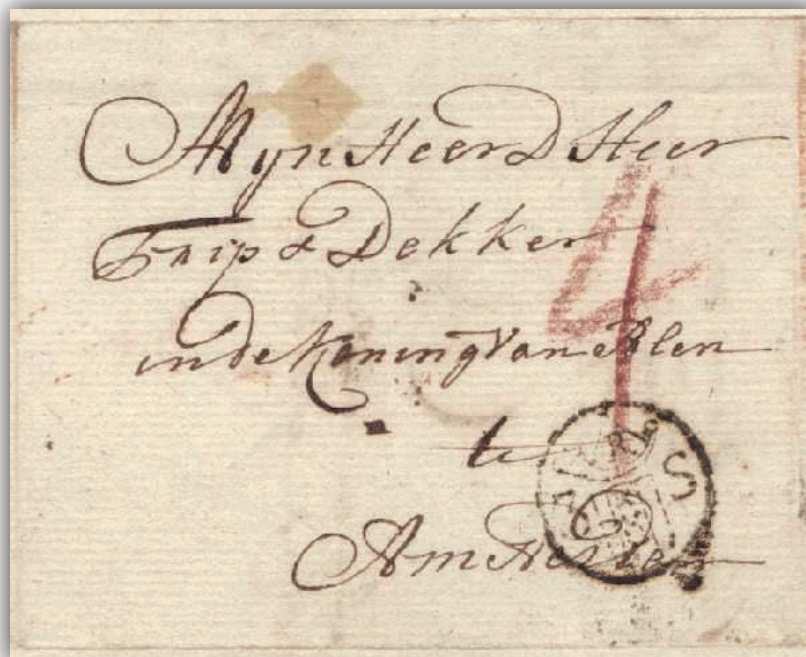 MynHeer D Heer
Trip & Dekker
in de Koning Van Polen
te
Amsterdam
4
S